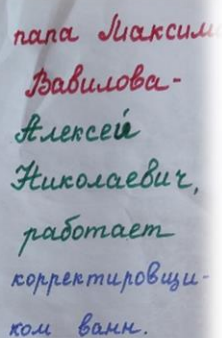 папа Максима
Вавилова-
Алексей
Николаевич,
работает
корректировщи-
ком ванн.